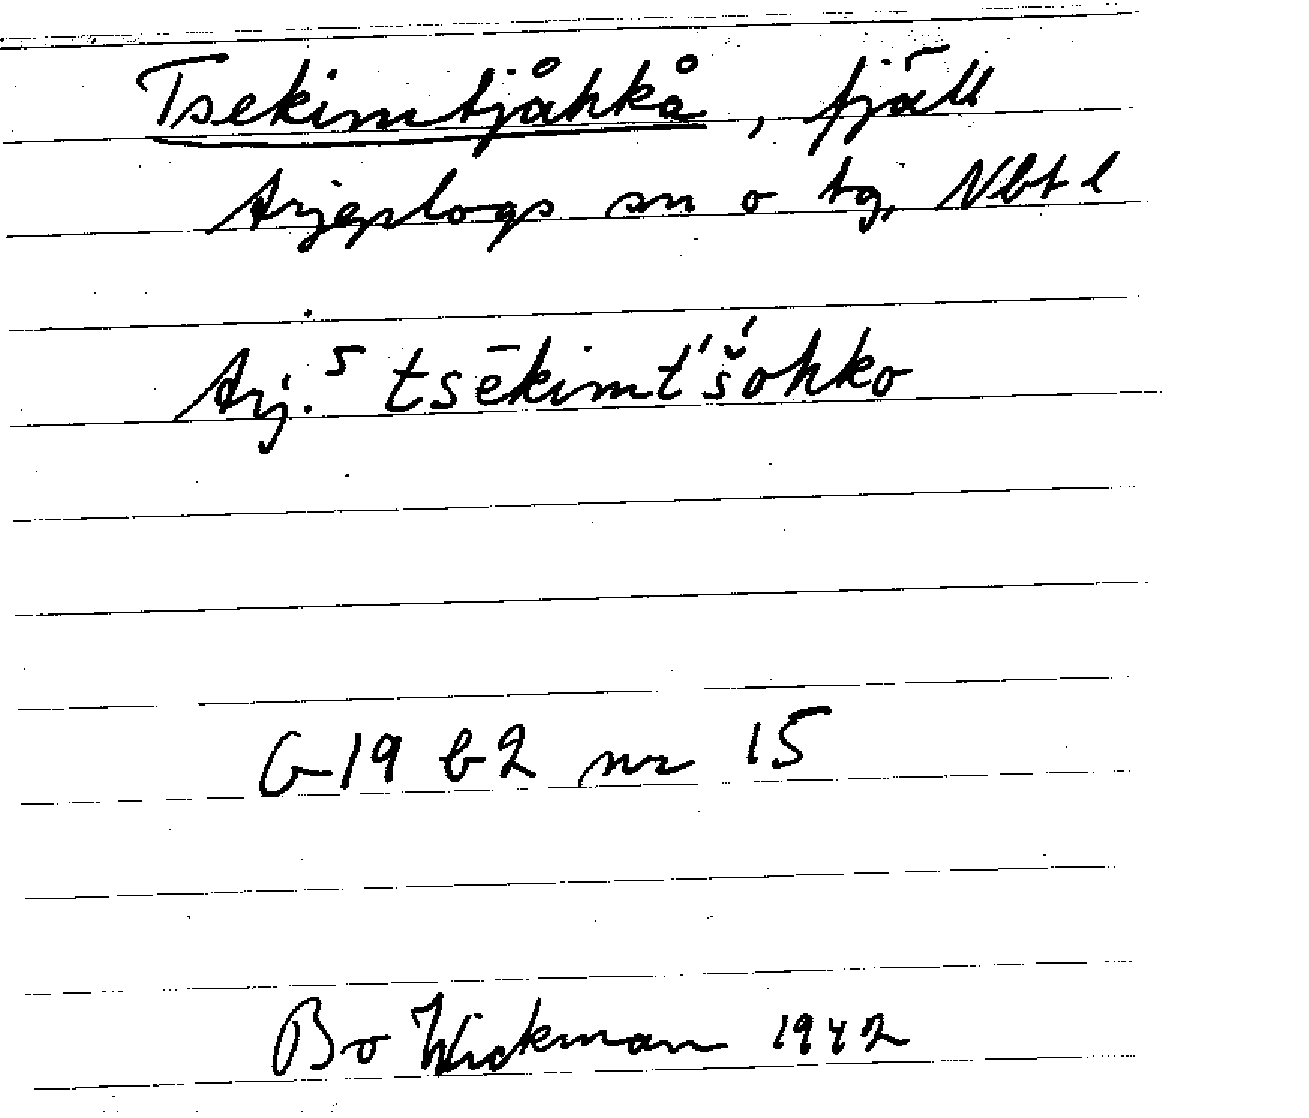 Tsekimtjåhkå, fjäll
Arjeplogs sn o tg, Nbt l
Arj.⁵ tsēkimt'š́ohko
G 19 b2 nr 15
Bo Wickman 1942